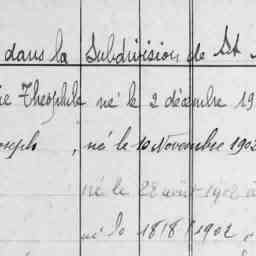 dans la Subdivision de St
ie Théophile né le 2 décembre 19
oseph, né le 10 Novembre 1902
né le 22 août 1902
né le 18/8/1902